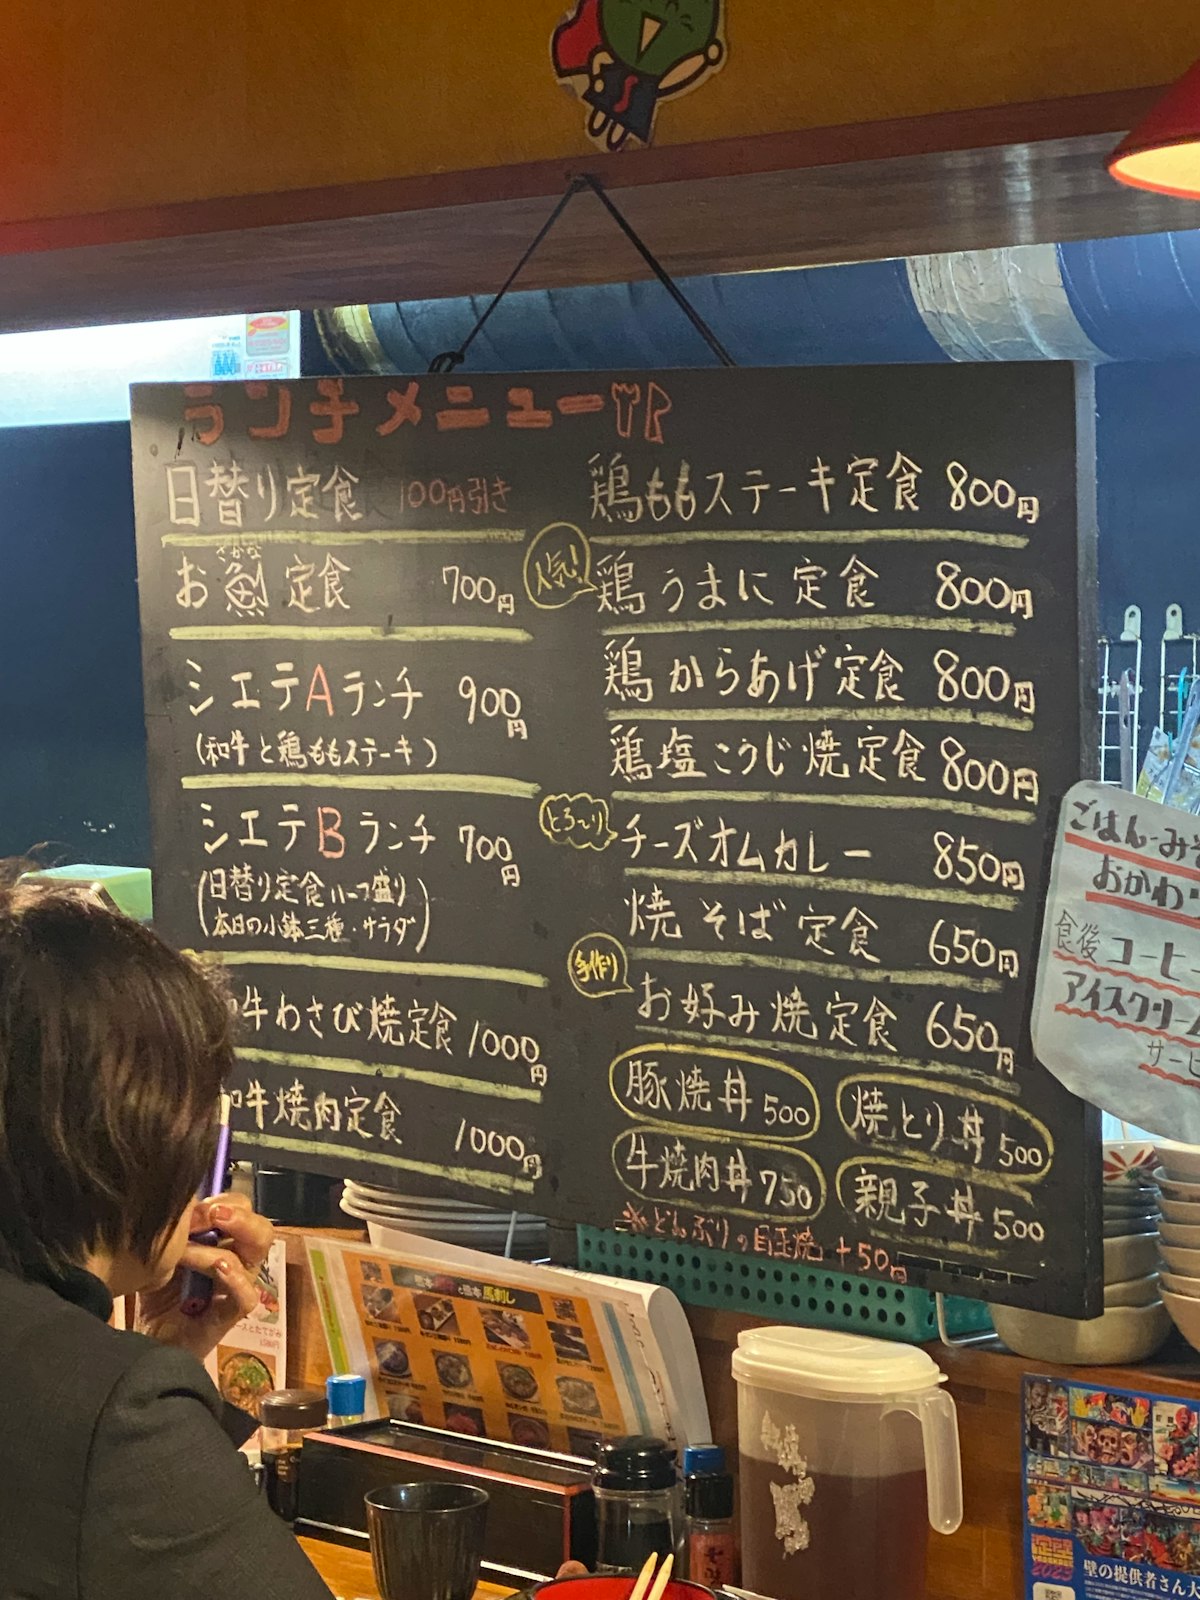 ランチメニュー
日替り定食 100円引き
さかな
お魚定食 700円
シエテAランチ 900円
(和牛と鶏ももステーキ)
シエテBランチ 700円
(日替り定食ハーフ盛り
本日の小鉢三種・サラダ)
牛わさび焼定食 1000円
和牛焼肉定食 1000円
鶏ももステーキ定食 800円
人気!
鶏うまに定食 800円
鶏からあげ定食 800円
鶏塩こうじ焼定食 800円
とろ〜り
チーズオムカレー 850円
焼そば定食 650円
手作り
お好み焼定食 650円
豚焼丼 500
焼とり丼 500
牛焼肉丼 750
親子丼 500
※どんぶりの目玉焼 +50円
ごはん・みそ
おかわり
食後コーヒー
アイスクリーム
サービ
熊本馬刺し
壁の提供者さん大
2025